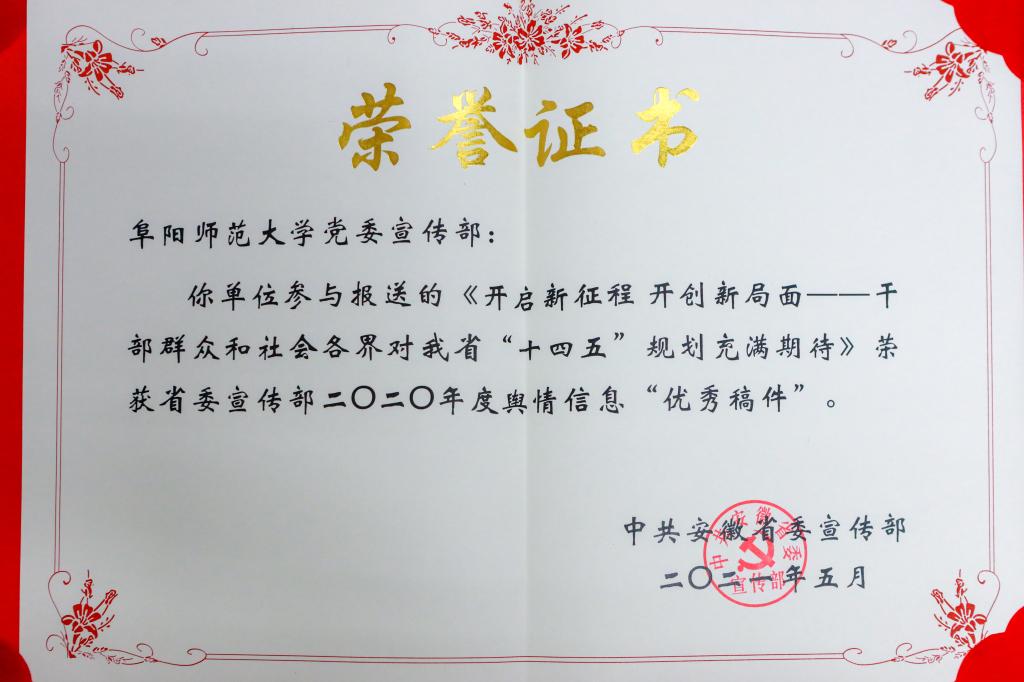 荣誉证书
阜阳师范大学党委宣传部：
你单位参与报送的《开启新征程 开创新局面——干
部群众和社会各界对我省“十四五”规划充满期待》荣
获省委宣传部二〇二〇年度舆情信息“优秀稿件”。
中共安徽省委宣传部
二〇二一年五月
中共安徽省委
宣传部